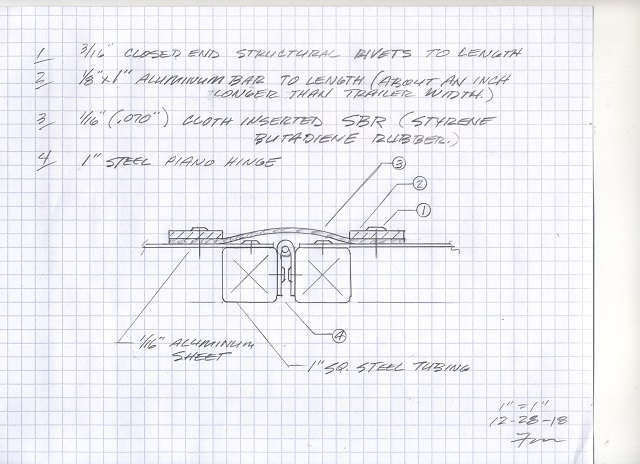 1 3/16" CLOSED END STRUCTURAL RIVETS TO LENGTH
2 1/8" x 1" ALUMINUM BAR TO LENGTH (ABOUT AN INCH
LONGER THAN TRAILER WIDTH.)
3 1/16" (.070") CLOTH INSERTED SBR (STYRENE
BUTADIENE RUBBER.)
4 1" STEEL PIANO HINGE
3
2
1
4
1/16" ALUMINUM
SHEET
1" SQ. STEEL TUBING
1" = 1"
12-28-18